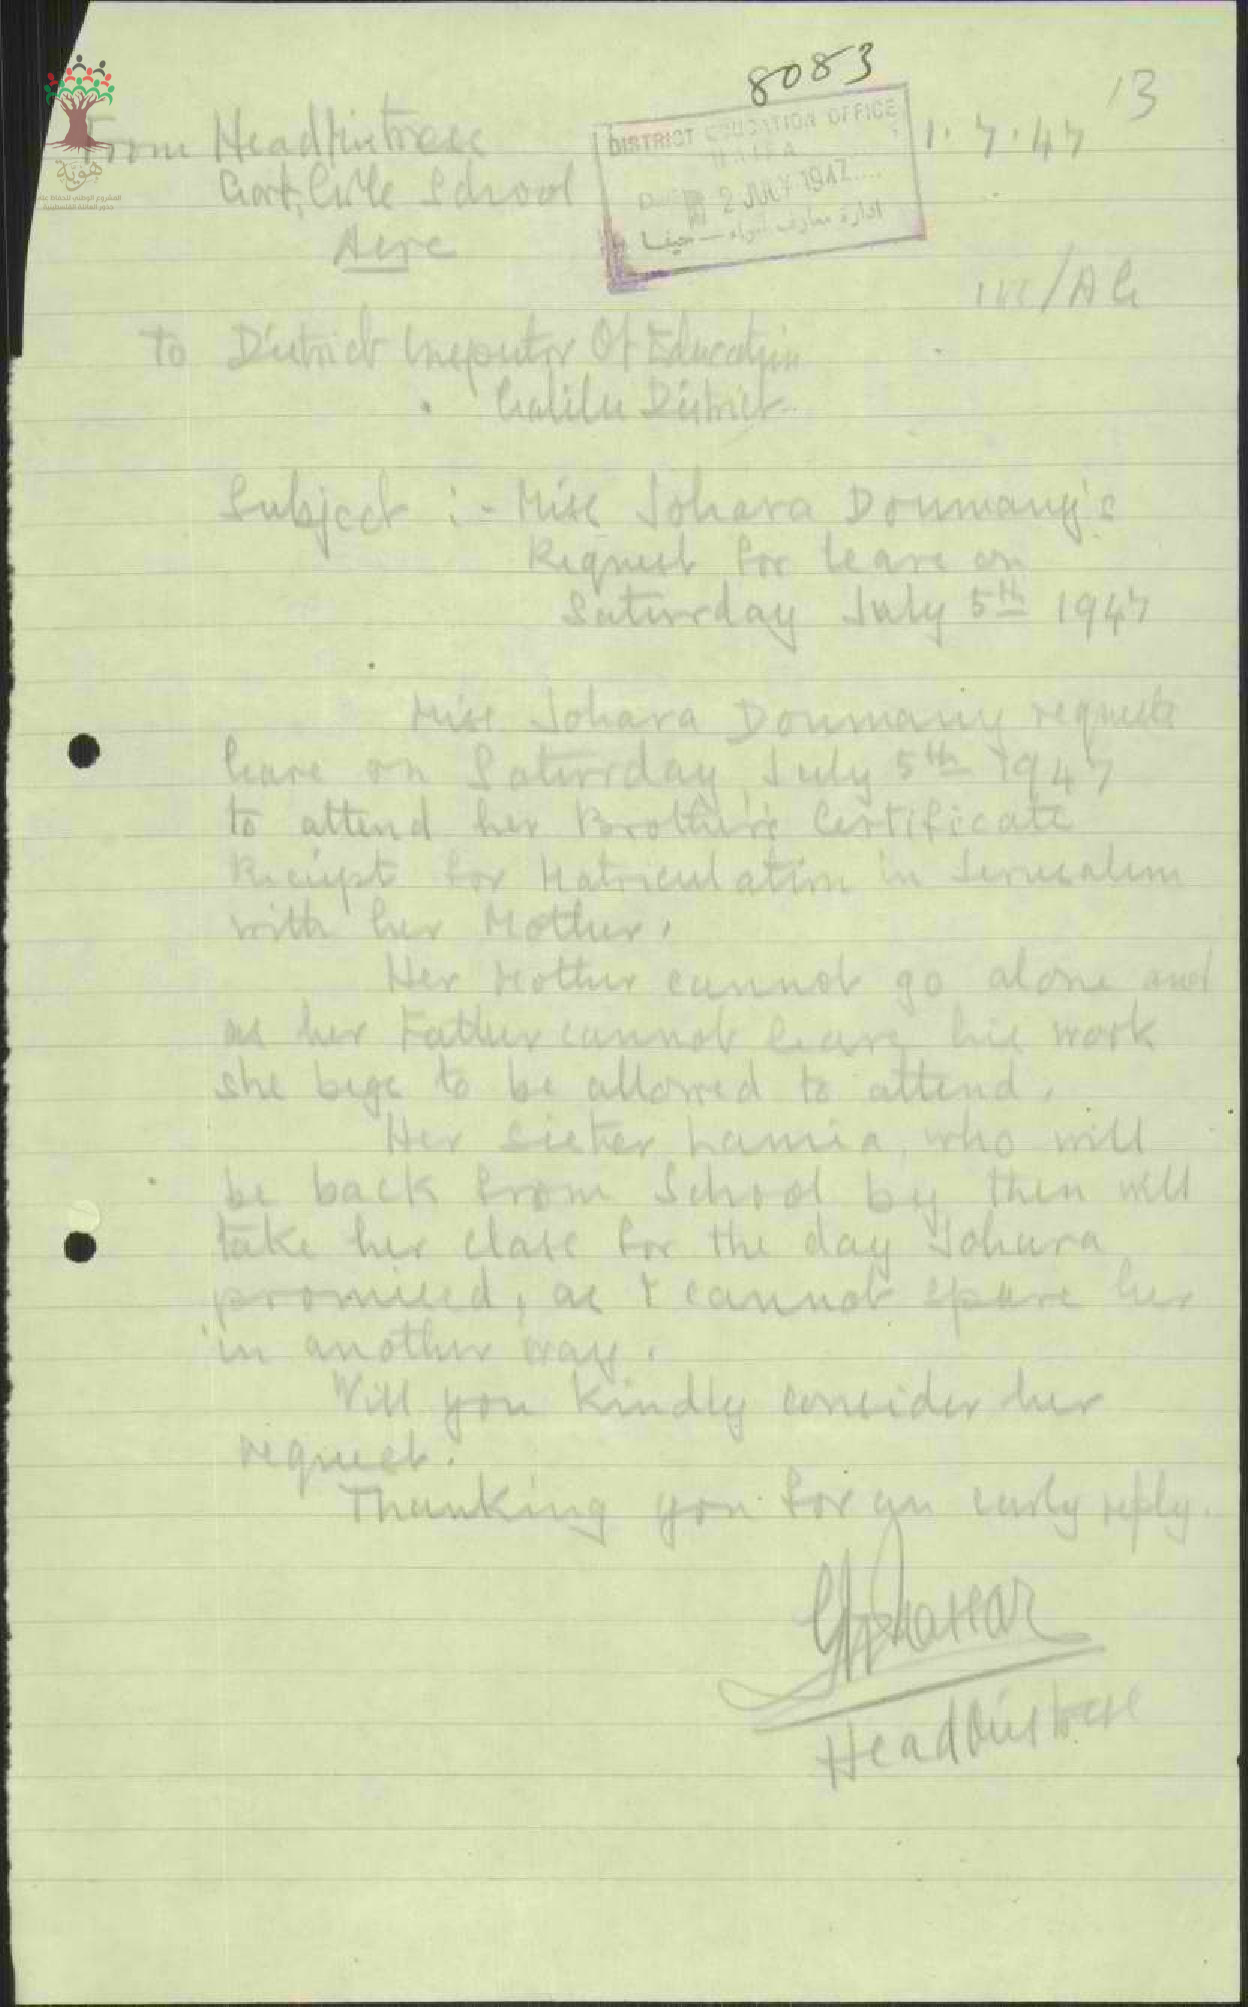 8083
13
From Headmistress
Govt. Girls School
Acre
DISTRICT EDUCATION OFFICE
HAIFA
2 JULY 1947
ادارة معارف لواء - حيفا
1.7.47
/AG
To District Inspector Of Education
Galilee District
Subject :- Miss Johara Doumany's
Request for leave on
Saturday July 5th 1947
Miss Johara Doumany requests
leave on Saturday, July 5th 1947
to attend her Brother's Certificate
Reciept for Matriculation in Jerusalem
with her Mother.
Her Mother cannot go alone and
as her Father cannot leave his work
she begs to be allowed to attend.
Her sister Lamia, who will
be back from School by then will
take her class for the day Johara
promised, as I cannot spare her
in another way.
Will you kindly consider her
request.
Thanking you for an early reply.
Headmistress
هوية